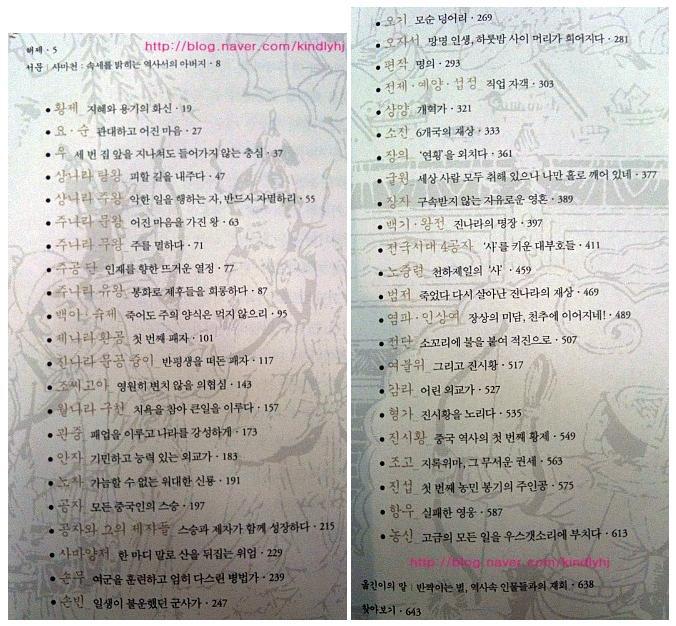 해제 · 5
http://blog.naver.com/kindlyhj
서문 | 사마천 : 속세를 밝히는 역사서의 아버지 · 8
• 황제 지혜와 용기의 화신 · 19
• 요 · 순 관대하고 어진 마음 · 27
• 우 세 번 집 앞을 지나쳐도 들어가지 않는 충심 · 37
• 상나라 탕왕 피할 길을 내주다 · 47
• 상나라 주왕 악한 일을 행하는 자, 반드시 자멸하리 · 55
• 주나라 문왕 어진 마음을 가진 왕 · 63
• 주나라 무왕 주를 멸하다 · 71
• 주공 단 인재를 향한 뜨거운 열정 · 77
• 주나라 유왕 봉화로 제후들을 희롱하다 · 87
• 백이 · 숙제 죽어도 주의 양식은 먹지 않으리 · 95
• 제나라 환공 첫 번째 패자 · 101
• 진나라 문공 중이 반평생을 떠돈 패자 · 117
• 조씨고아 영원히 변치 않을 의협심 · 143
• 월나라 구천 치욕을 참아 큰일을 이루다 · 157
• 관중 패업을 이루고 나라를 강성하게 · 173
• 안자 기민하고 능력 있는 외교가 · 183
• 노자 가늠할 수 없는 위대한 신룡 · 191
• 공자 모든 중국인의 스승 · 197
• 공자와 그의 제자들 스승과 제자가 함께 성장하다 · 215
• 사마양저 한 마디 말로 산을 뒤집는 위엄 · 229
• 손무 여군을 훈련하고 엄히 다스린 병법가 · 239
• 손빈 일생이 불운했던 군사가 · 247
• 오기 모순 덩어리 · 269
• 오자서 망명 인생, 하룻밤 사이 머리가 희어지다 · 281
• 편작 명의 · 293
• 전제 · 예양 · 섭정 직업 자객 · 303
• 상앙 개혁가 · 321
• 소진 6개국의 재상 · 333
• 장의 '연횡'을 외치다 · 361
• 굴원 세상 사람 모두 취해 있으나 나만 홀로 깨어 있네 · 377
• 장자 구속받지 않는 자유로운 영혼 · 389
• 백기 · 왕전 진나라의 명장 · 397
• 전국시대 4공자 '사'를 키운 대부호들 · 411
• 노중련 천하제일의 '사' · 459
• 범저 죽었다 다시 살아난 진나라의 재상 · 469
• 염파 · 인상여 장상의 미담, 천추에 이어지네! · 489
• 전단 소꼬리에 불을 붙여 적진으로 · 507
• 여불위 그리고 진시황 · 517
• 감라 어린 외교가 · 527
• 형가 진시황을 노리다 · 535
• 진시황 중국 역사의 첫 번째 황제 · 549
• 조고 지록위마, 그 무서운 권세 · 563
• 진섭 첫 번째 농민 봉기의 주인공 · 575
• 항우 실패한 영웅 · 587
• 농신 고금의 모든 일을 우스갯소리에 부치다 · 613
http://blog.naver.com/kindlyhj
옮긴이의 말 | 반짝이는 별, 역사속 인물들과의 재회 · 638
찾아보기 · 643